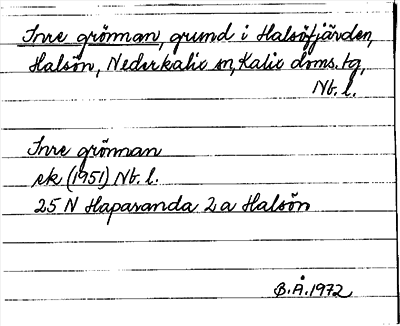 Inre grönnan, grund i Halsöfjärden,
Halsön, Nederkalix sn, Kalix doms. tg,
Nb. l.
Inre grönnan
ek (1951) Nb. l.
25 N Haparanda 2 a Halsön
B.Å. 1972